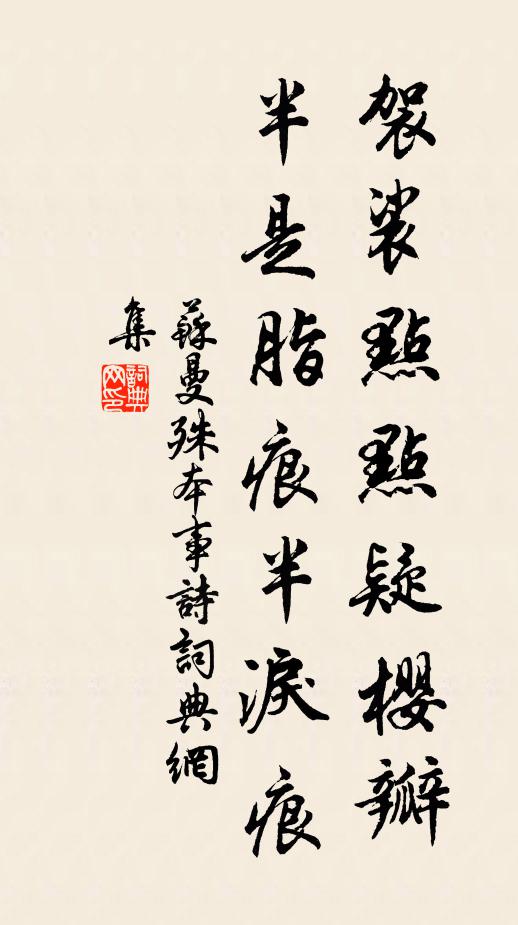 袈裟點點疑櫻瓣
半是脂痕半淚痕
蘇曼殊本事詩詞典網
集
詞典
网印